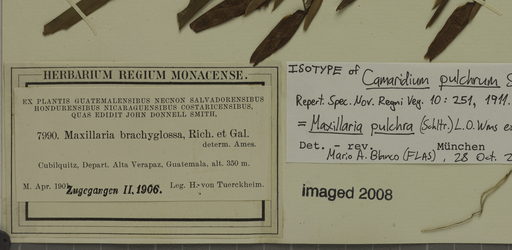 HERBARIUM REGIUM MONACENSE.
EX PLANTIS GUATEMALENSIBUS NECNON SALVADORENSIBUS
HONDURENSIBUS NICARAGUENSIBUS COSTARICENSIBUS,
QUAS EDIDIT JOHN DONNELL SMITH.
7990. Maxillaria brachyglossa, Rich. et Gal.
determ. Ames.
Cubilquitz, Depart. Alta Verapaz, Guatemala, alt. 350 m.
M. Apr. 1901. Leg. H. von Tuerckheim.
Zugegangen II, 1906.
ISOTYPE of Camaridium pulchrum S
Repert. Spec. Nov. Regni Veg. 10: 251, 1911.
= Maxillaria pulchra (Schltr.) L.O. Wms ex
Det. – rev. München
Mario A. Blanco (FLAS), 28 Oct. 2
imaged 2008